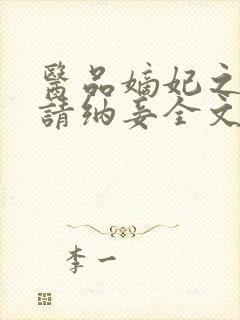 醫品嫡妃之
請納妾全文
李一